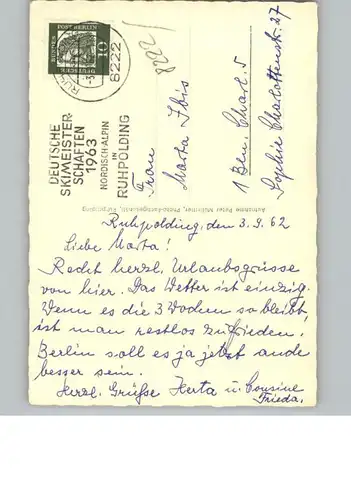 DEUTSCHE BUNDESPOST BERLIN
10
8222
8222
DEUTSCHE
SKIMEISTER
SCHAFTEN
1963
NORDISCH-ALPIN
IN
RUHPOLDING
Frau
Marta Ibis
1 Bln. Charl. 5
Sophie Charlottenstr. 27
Ruhpolding, den 3.9.62
Liebe Marta!
Recht herzl. Urlaubsgrüsse
von hier. Das Wetter ist einzig.
Wenn es die 3 Wochen so bleibt,
ist man restlos zufrieden.
Berlin soll es ja jetzt auch
besser sein.
Herzl. Grüße Herta u. Cousine
Frieda.